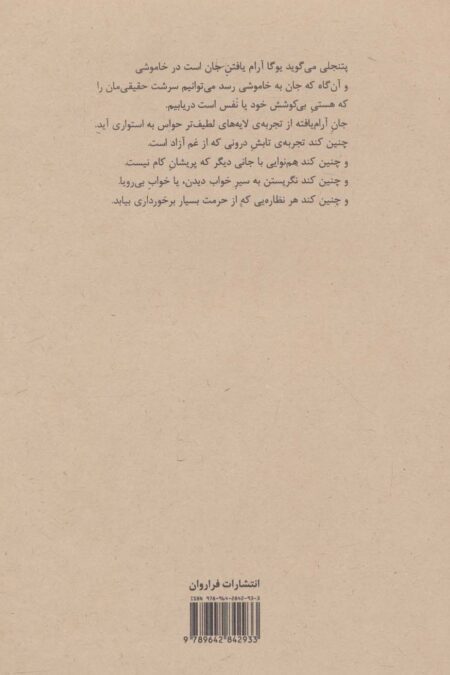 پتنجلی می‌گوید یوگا آرام یافتنِ جان است در خاموشی
و آن‌گاه که جان به خاموشی رسد می‌توانیم سرشت حقیقی‌مان را
که هستیِ بی‌کوشش خود یا نفس است دریابیم.
جانِ آرام‌یافته از تجربه‌ی لایه‌های لطیف‌تر حواس به استواری آید.
چنین کند تجربه‌ی تابش درونی که از غم آزاد است.
و چنین کند هم‌نوایی با جانی دیگر که پریشان کام نیست.
و چنین کند نگریستن به سیرِ خواب دیدن، یا خوابِ بی‌رویا.
و چنین کند هر نظاره‌یی که از حرمت بسیار برخورداری بیابد.
انتشارات فراروان
ISBN 978-964-2842-93-3
9 789642 842933